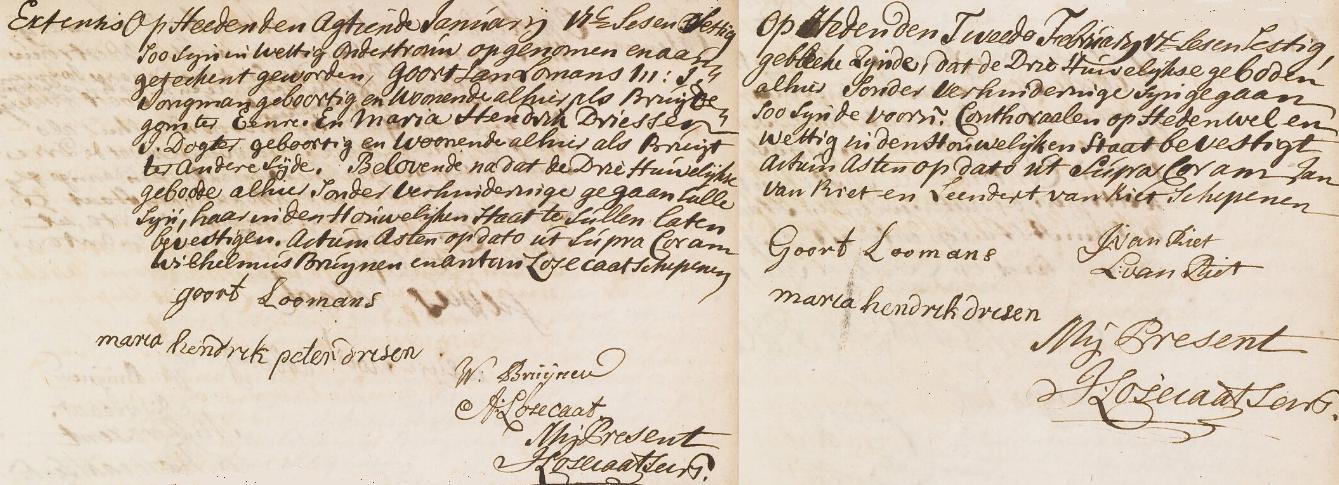 Extensis Op Heeden den Agtiende January 17C Sesen Sestig
soo syn in wettig ondertrouw op genomen en aan
geteekent geworden, Goort Jan Lomans
Jongman geboortig en woonende alhier als Bruyde
gom ter Eenre. En Maria Hendrik Driessen
J. Dogter geboortig en woonende alhier als Bruyt
ter Andere Zyde. Belovende na dat de Drie Huwelykse
geboode alhier sonder verhindernige gegaan sulle
syn, haar in den Houwelyken Staat te sullen laten
bevestigen. Actum Asten op dato ut supra Coram
Wilhelmus Bruynen en antoni Losecaat Schepenen
goort Loomans
maria hendrik peter drisen
W. Bruynen
A. Losecaat
My Present
J Losecaat Secrs.
Op Heden den Tweede February 17C Sesen Sestig,
gebleeke Zynde, dat de Drie Huwelykse geboden
alhier Sonder verhindernige syn gegaan
soo syn de voorn: Conthoraalen op Heden wel en
wettig in den Houwelyken Staat bevestigt
Actum Asten op dato ut supra Coram Jan
van Riet en Leendert van Riet Schepenen
Goort Loomans
J van Riet
L van Riet
maria hendrik drisen
My Present
J Losecaat Secrs.